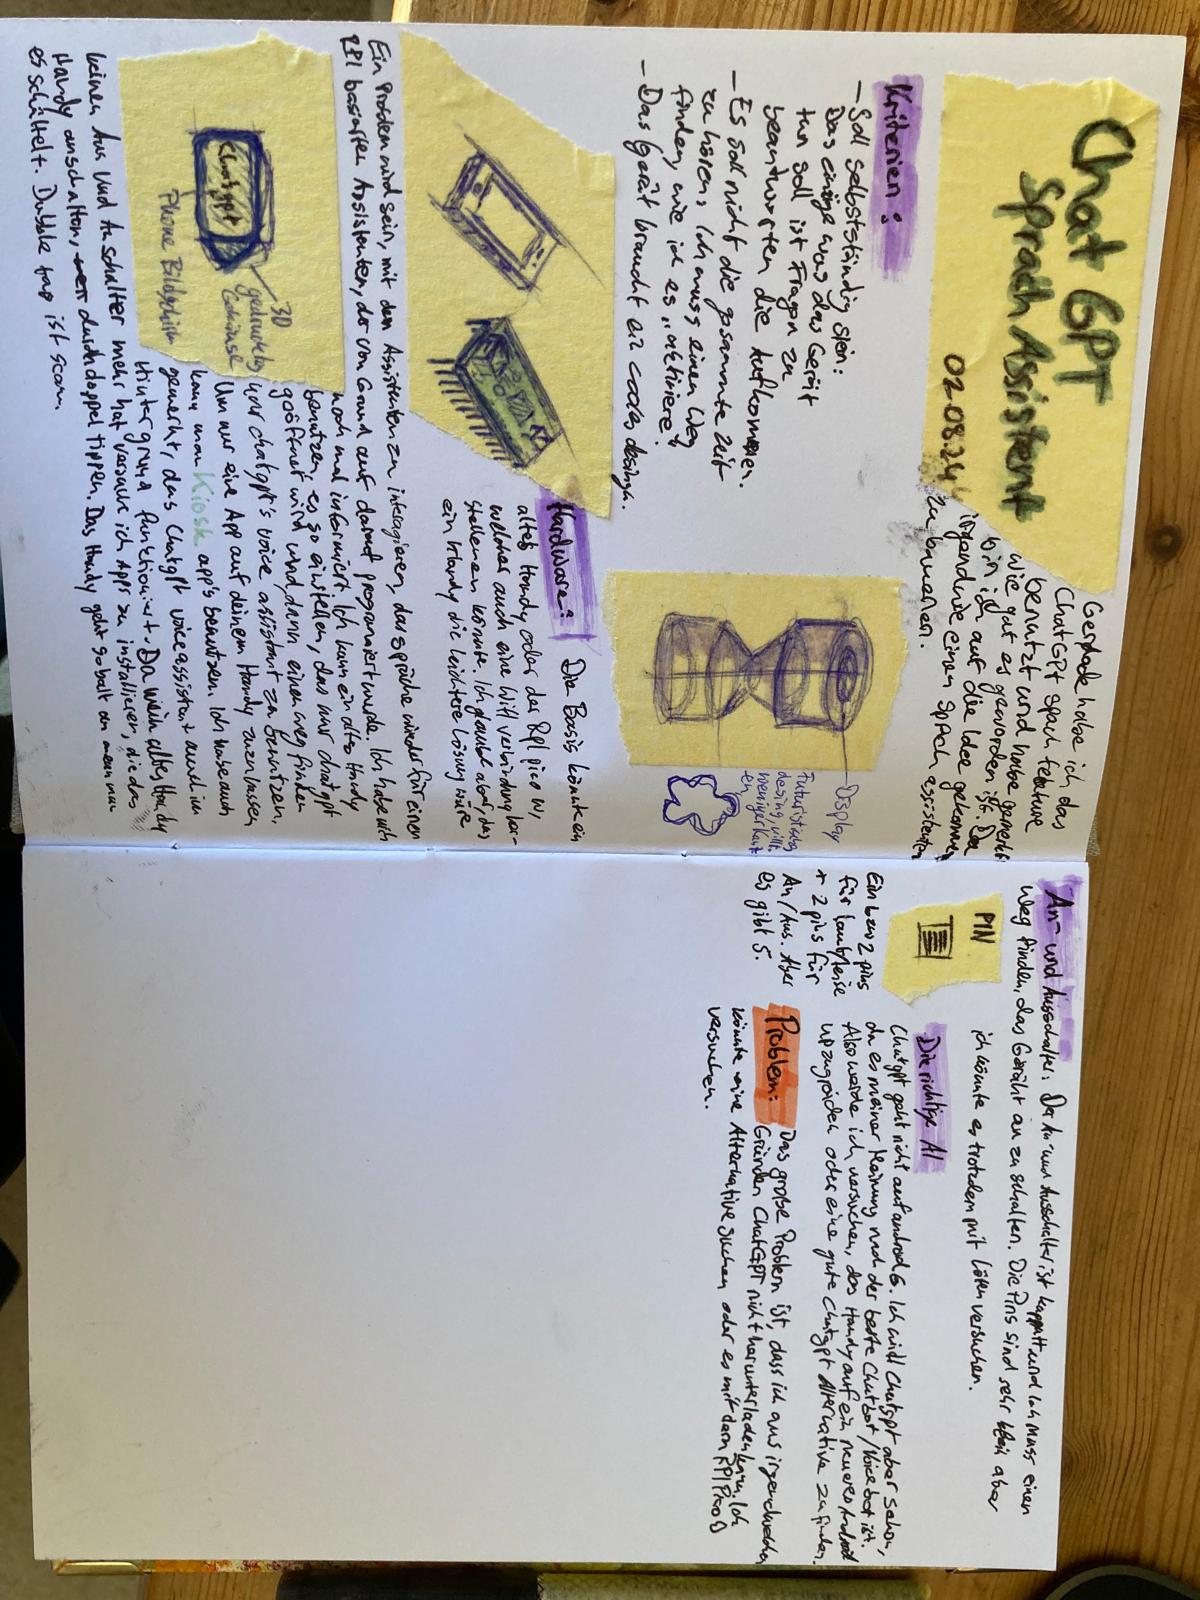 Chat GPT
Sprach Assistent
02.08.24
Gerade habe ich das
ChatGPT sprach feature
benutzt und habe gemerkt
wie gut es geworden ist. Da
bin ich auf die Idee gekommen
irgendwie einen Sprach assistenten
zu bauen.
Kriterien:
- Soll selbstständig sein:
Das einzige was das Gerät
tun soll ist Fragen zu
beantworten die aufkommen.
- Es soll nicht die gesammte Zeit
zu hören, ich muss einen Weg
finden, wie ich es "aktiviere".
- Das Gerät braucht ein cooles design.
Display
Futuristisches
desing, villt.
weniger kant
en
Hardware:
Die Basis könnte ein
altes Handy oder der RPI pico W,
welcher auch eine Wifi verbindung her-
stellen könnte. Ich glaube aber, das
ein Handy die leichtere Lösung wäre
Ein Problem wird sein, mit dem Assistenten zu interagieren, das spräche wieder für einen
RPI basierten Assistenten, der von Grund auf darauf programmiert wurde. Ich habe mich
noch mal informiert. Ich kann ein altes Handy
benutzen, es so einstellen, das nur chatgpt
geöffnet wird und dann einen weg finden
um chatgpt's voice assistant zu benutzen.
Um nur eine App auf deinem Handy zuzulassen
kann man Kiosk app's benutzen. Ich habe auch
gemerkt, das Chatgpt voice assistant auch im
Hintergrund funktioniert. Da mein altes Handy
keinen Aus und An schalter mehr hat versuche ich Apps zu installieren, die das
Handy anschalten, durch doppel tippen. Das Handy geht so bald an wenn man
es schüttelt. Dubble tap ist scam.
Chatgpt
3D
gedrucktes
Gehäuse
Phone Bildschirm
An- und Ausschalter: Der An- und Ausschalter ist kapputt und ich muss einen
Weg finden, das Gerät an zu schalten. Die Pins sind sehr klein aber
ich könnte es trotzdem mit löten versuchen.
PIN
Ein bzw 2 pins
für laut/leise
+ 2 pins für
An/Aus. Aber
es gibt 5.
Die richtige AI
Chatgpt geht nicht auf android 6. Ich will Chatgpt aber schon,
da es meiner Meinung nach der beste Chatbot/Voicebot ist.
Also werde ich versuchen, das Handy auf ein neueres Android
upzugraiden oder eine gute Chatgpt Alternative zu finden.
Problem: Das große Problem ist, dass ich aus irgendwelchen
Gründen ChatGPT nicht herunterladen kann. Ich
könnte eine Alternative suchen oder es mit dem RPI Pico
versuchen.